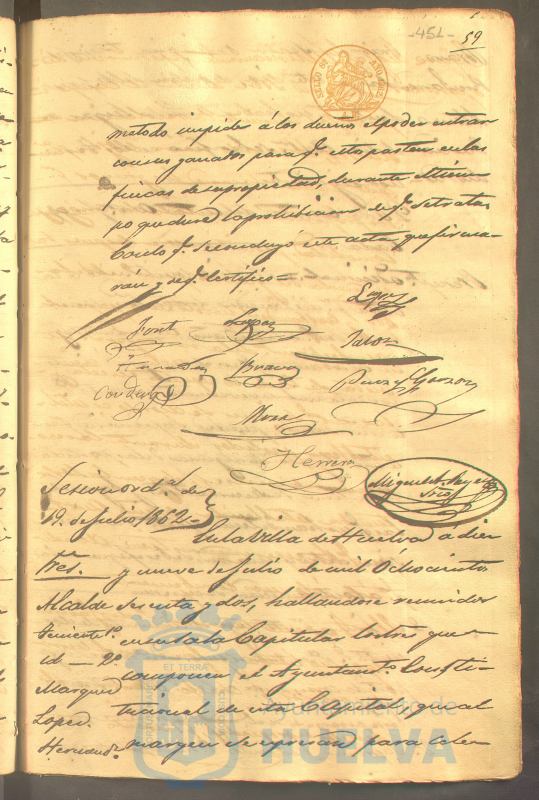 -451-
59
SELLO 9º AÑO 1862
metodo impider á los dueños el poder entrar
con sus ganados para q.e estos pasten en las
fincas de su propiedad, durante el tiem
po que dure la prohibicion de q.e se trata
Con lo q.e se concluyó este acta, que firma-
rán y de q.e Certifico =
Lopez
Font
Jalon
Bravo
Perez y Garzon
Cordero
Mora
Herrera
Miguel
Srio
Sesion ord.a de
19. de Julio 1862-
En la Villa de Huelva á diez
Sres.
y nueve de Julio de mil Ochocientos
Alcalde
sesenta y dos, hallandose reunidos
Teniente 1º
en esta Sala Capitular los tres que
id — 2º
componen el Ayuntam.to Consti-
Marquez
tucional de esta Capital, que al
Lopez.
margen se espresan para cele-
Hernand.z
ET TERRA
Ayuntamiento de
HUELVA